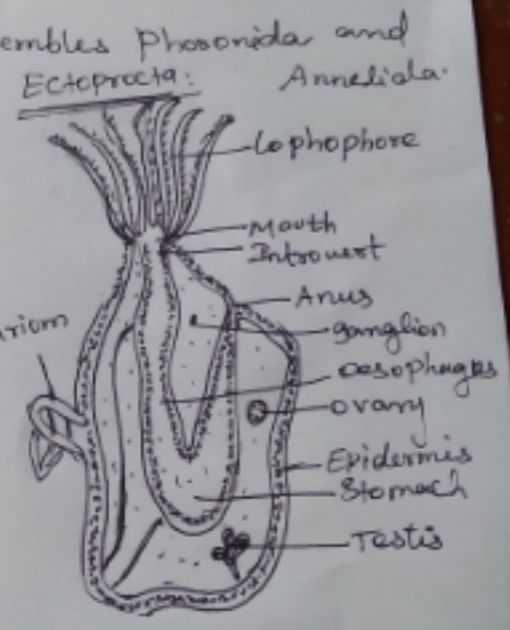 embles Phoronida and
Ectoprocta: Annelida.
Lophophore
Mouth
Introvert
Anus
ganglion
rium
oesophagus
ovary
Epidermis
Stomach
Testis